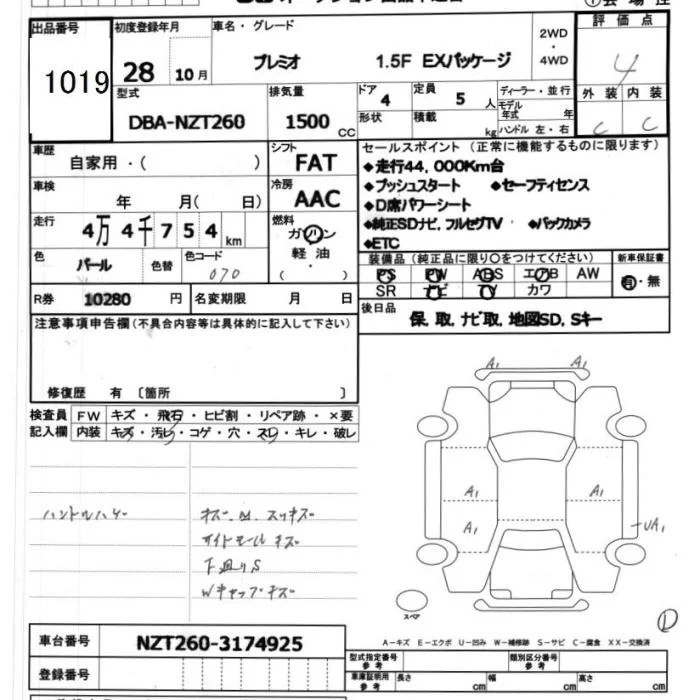 出品番号
1019
初度登録年月
28 10月
車名・グレード
プレミオ 1.5F EXパッケージ
2WD
・
4WD
評価点
4
外装 内装
C C
型式
DBA-NZT260
排気量
1500 CC
ドア
4
定員
5 人
形状
積載
kg
ディーラー・並行
モデル
年式 年
ハンドル 左・右
車歴
自家用・( )
シフト
FAT
車検
年 月( 日)
冷房
AAC
走行
4万4千754km
燃料
ガソリン
(軽油)
・
色
パール
色替
色コード
070
R券
10280 円
名変期限 月 日
セールスポイント(正常に機能するものに限ります)
◆走行44,000Km台
◆プッシュスタート ◆セーフティセンス
◆D席パワーシート
◆純正SDナビ,フルセグTV ◆バックカメラ
◆ETC
装備品(純正品に限り○をつけてください)
PS PW ABS エアB AW
SR ナビ TV カワ
新車保証書
有・無
後日品
保,取,ナビ取,地図SD,Sキー
注意事項申告欄(不具合内容等は具体的に記入して下さい)
修復歴 有 〔箇所 〕
検査員
記入欄
FW キズ・飛石・ヒビ割・リペア跡・×要
内装 キズ・汚レ・コゲ・穴・スレ・キレ・破レ
ハンドルハゲ
キズ、凹、スリキズ
サイドモールキズ
下廻りS
Wキャップキズ
A1 A1
A1 A1
A1
UA1
スペア
D
A-キズ E-エクボ U-凹み W-補修跡 S-サビ C-腐食 XX-交換済
車台番号
NZT260-3174925
登録番号
型式指定番号
参考
類別区分番号
参考
車庫証明用
参考
長さ cm
幅 cm
高さ cm